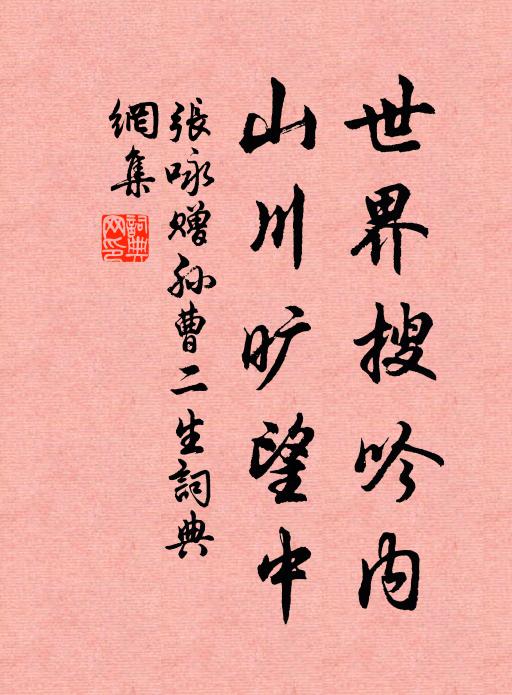 世界搜吟内
山川旷望中
張咏赠孙曹二生詞典
網集
詞典
网印